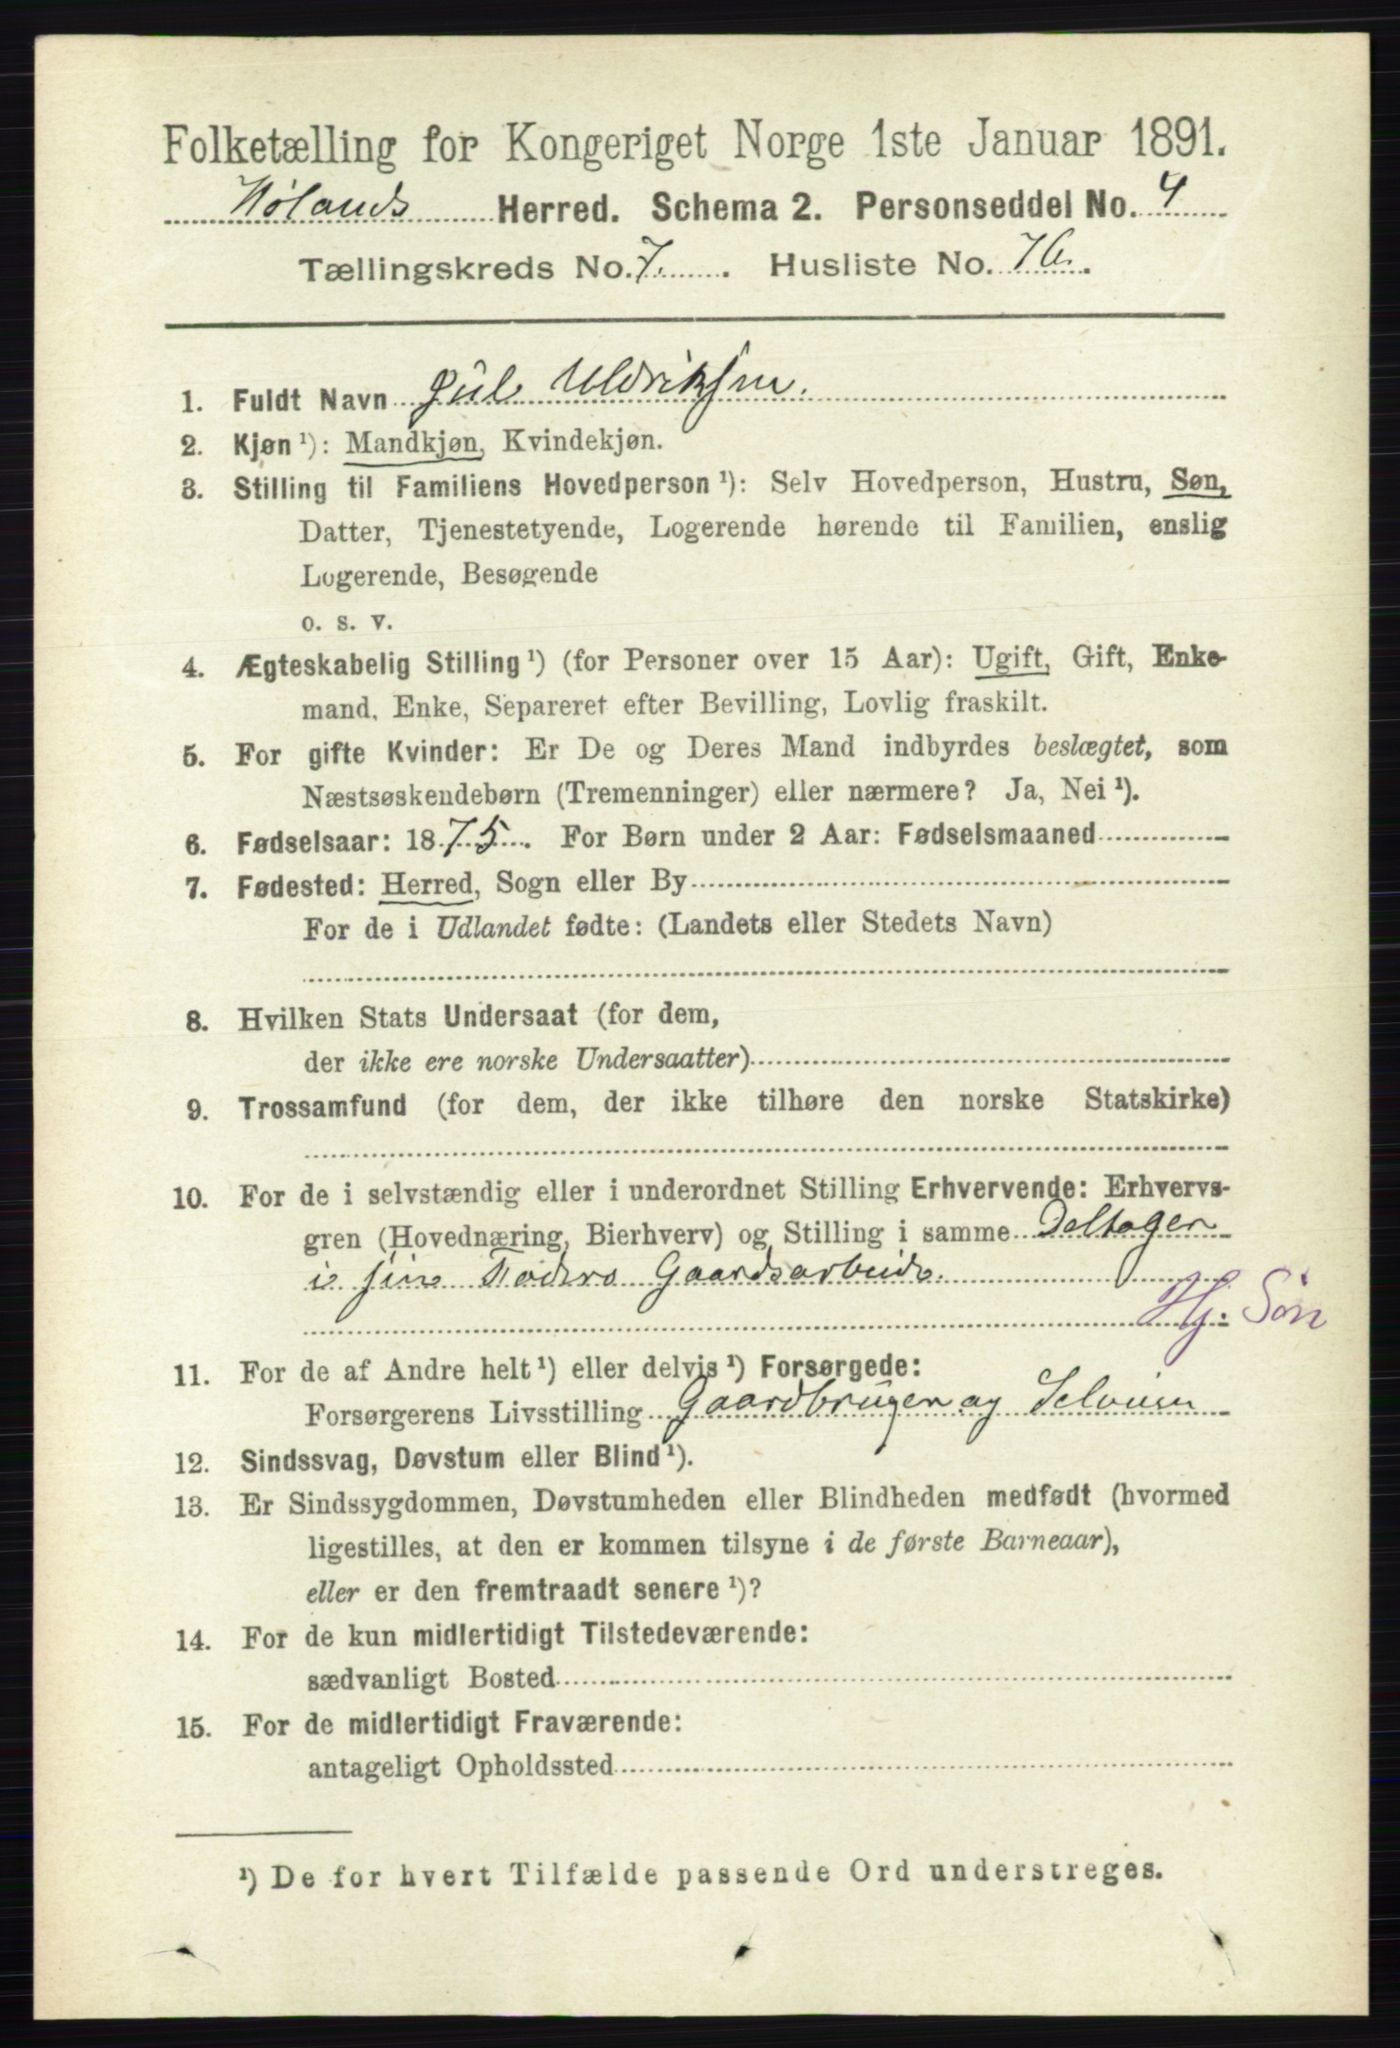 Folketælling for Kongeriget Norge 1ste Januar 1891.
Hølands Herred. Schema 2. Personseddel No. 4
Tællingskreds No. 7. Husliste No. 76.
1. Fuldt Navn Jul Uldriksen.
2. Kjøn ¹): Mandkjøn, Kvindekjøn.
3. Stilling til Familiens Hovedperson ¹): Selv Hovedperson, Hustru, Søn,
Datter, Tjenestetyende, Logerende hørende til Familien, enslig
Logerende, Besøgende
o. s. v.
4. Ægteskabelig Stilling ¹) (for Personer over 15 Aar): Ugift, Gift, Enke-
mand, Enke, Separeret efter Bevilling, Lovlig fraskilt.
5. For gifte Kvinder: Er De og Deres Mand indbyrdes beslægtet, som
Næstsøskendebørn (Tremenninger) eller nærmere? Ja, Nei ¹).
6. Fødselsaar: 1875. For Børn under 2 Aar: Fødselsmaaned
7. Fødested: Herred, Sogn eller By
For de i Udlandet fødte: (Landets eller Stedets Navn)
8. Hvilken Stats Undersaat (for dem,
der ikke ere norske Undersaatter)
9. Trossamfund (for dem, der ikke tilhøre den norske Statskirke)
10. For de i selvstændig eller i underordnet Stilling Erhvervende: Erhvervs-
gren (Hovednæring, Bierhverv) og Stilling i samme Deltager
i sin Faders Gaardsarbeide.
Hj. Søn
11. For de af Andre helt ¹) eller delvis ¹) Forsørgede:
Forsørgerens Livsstilling Gaardbruger og Selveier
12. Sindssvag, Døvstum eller Blind ¹).
13. Er Sindssygdommen, Døvstumheden eller Blindheden medfødt (hvormed
ligestilles, at den er kommen tilsyne i de første Barneaar),
eller er den fremtraadt senere ¹)?
14. For de kun midlertidigt Tilstedeværende:
sædvanligt Bosted
15. For de midlertidigt Fraværende:
antageligt Opholdssted
¹) De for hvert Tilfælde passende Ord understreges.